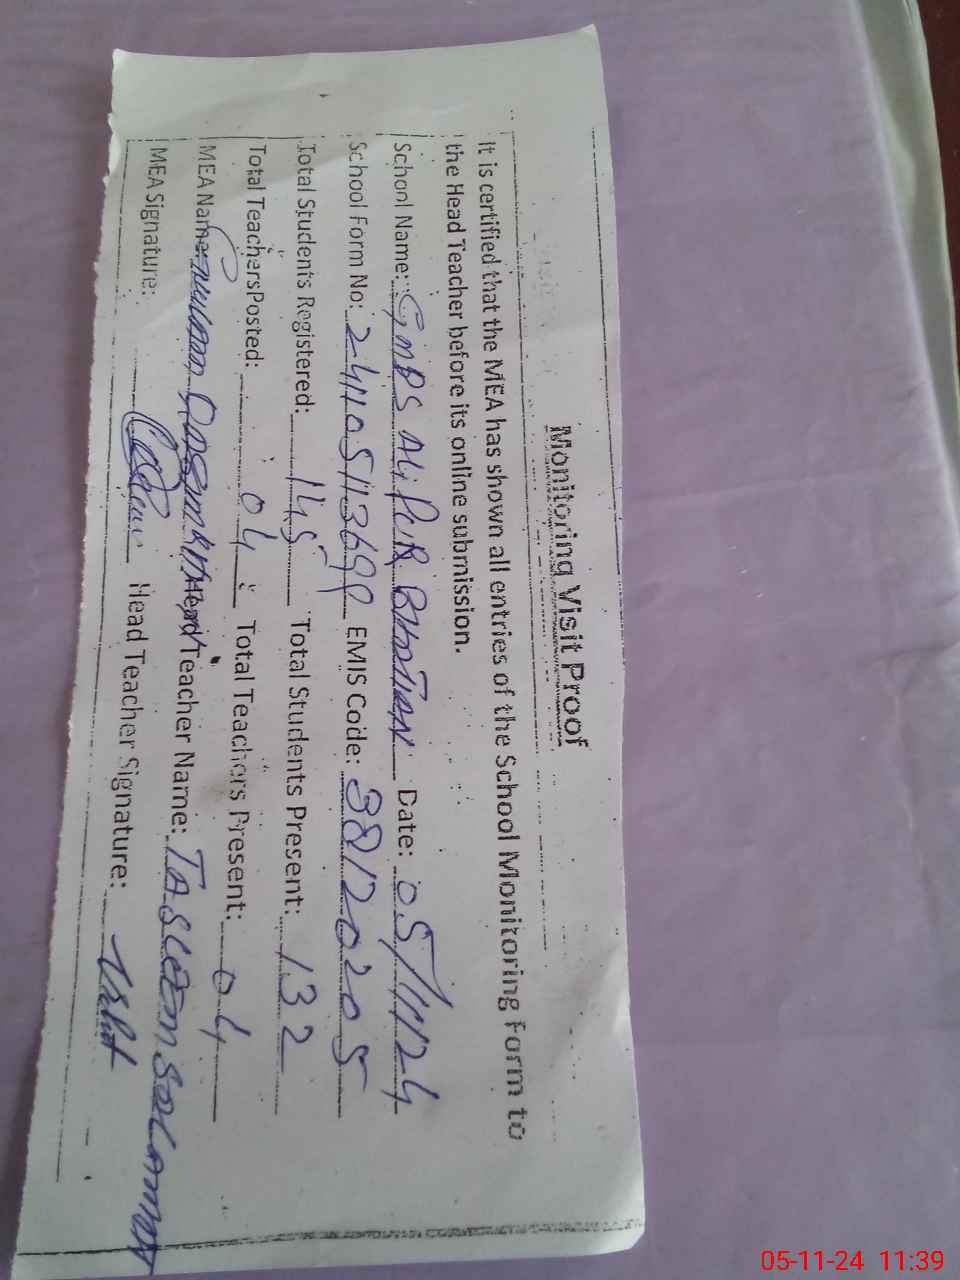 Monitoring Visit Proof
It is certified that the MEA has shown all entries of the School Monitoring Form to
the Head Teacher before its online submission.
School Name: GMPS Alipur Bhattian Date: 05/11/24
School Form No: 241105113699 EMIS Code: 38120205
Total Students Registered: 145 Total Students Present: 132
Total Teachers Posted: 04 Total Teachers Present: 04
MEA Name: Ghulam Head Teacher Name: Tasleem
MEA Signature: Head Teacher Signature:
05-11-24 11:39